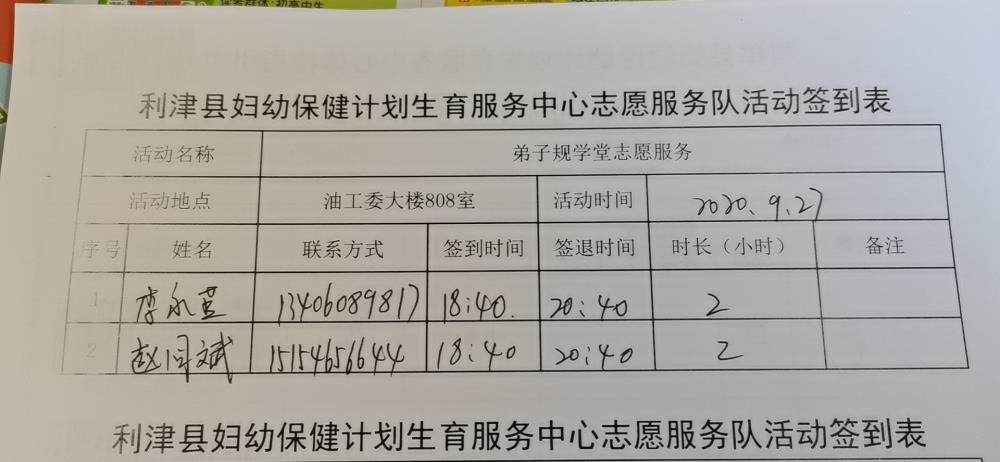 保养群体:初高中生
利津县妇幼保健计划生育服务中心志愿服务队活动签到表
活动名称 弟子规学堂志愿服务
活动地点 油工委大楼808室 活动时间 2020.9.27
序号 姓名 联系方式 签到时间 签退时间 时长（小时） 备注
1 李永莲 13406089817 18:40. 20:40 2
2 赵同斌 15154656644 18:40 20:40 2
利津县妇幼保健计划生育服务中心志愿服务队活动签到表